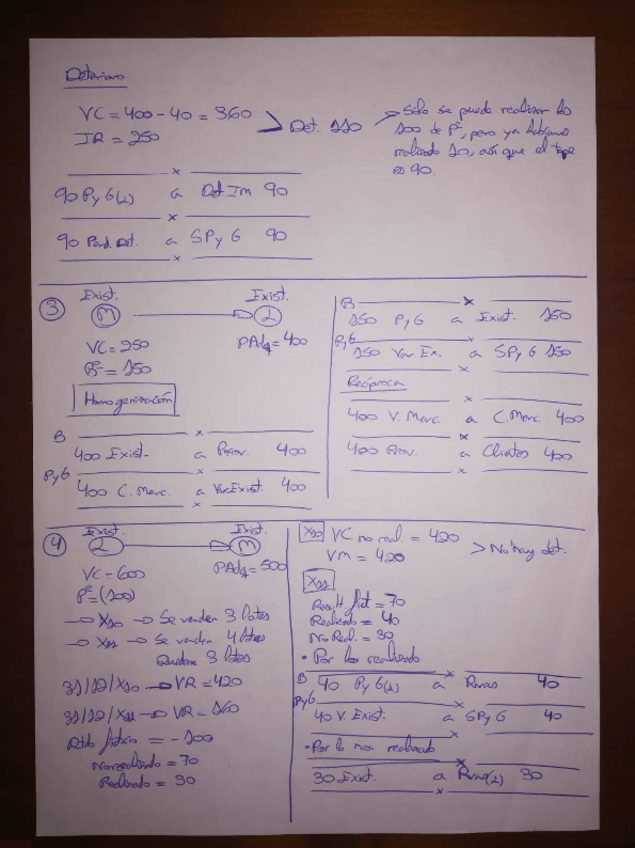 Deterioro
VC = 400 - 40 = 360
IR = 250
> Det. 110
Sólo se puede realizar los
100 de Bº, pero ya habíamos
realizado 10, así que el tope
es 90.
90 PyG(2) a Det. Im 90
90 Perd. Det. a SPyG 90
3
Exist. Exist.
M 2
VC = 250 PAdq = 400
Bº = 150
Homogeneización
B
400 Exist. a Prov. 400
PyG
400 C. Merc. a Var. Exist. 400
B
150 PyG a Exist. 150
PyG
150 Var Ex. a SPyG 150
Recíproca
400 V. Merc. a C. Merc. 400
400 Prov. a Clientes 400
4
Exist. Exist.
2 M
VC = 600 PAdq = 500
Bº = (100)
→ X10 → Se venden 3 lotes
→ X11 → Se venden 4 lotes
Quedan 3 lotes
31/12/X10 → VR = 420
31/12/X11 → VR = 160
Rtdo ficticio = -100
No realizado = 70
Realizado = 30
X10 VC no real. = 420
VM = 420
> No hay det.
X11
Result. fict = 70
Realizado = 40
No Real. = 30
• Por lo realizado
B
40 PyG(2) a Rvas 40
PyG
40 V. Exist. a SPyG 40
• Por lo no realizado
30 Exist. a Rvas(2) 30